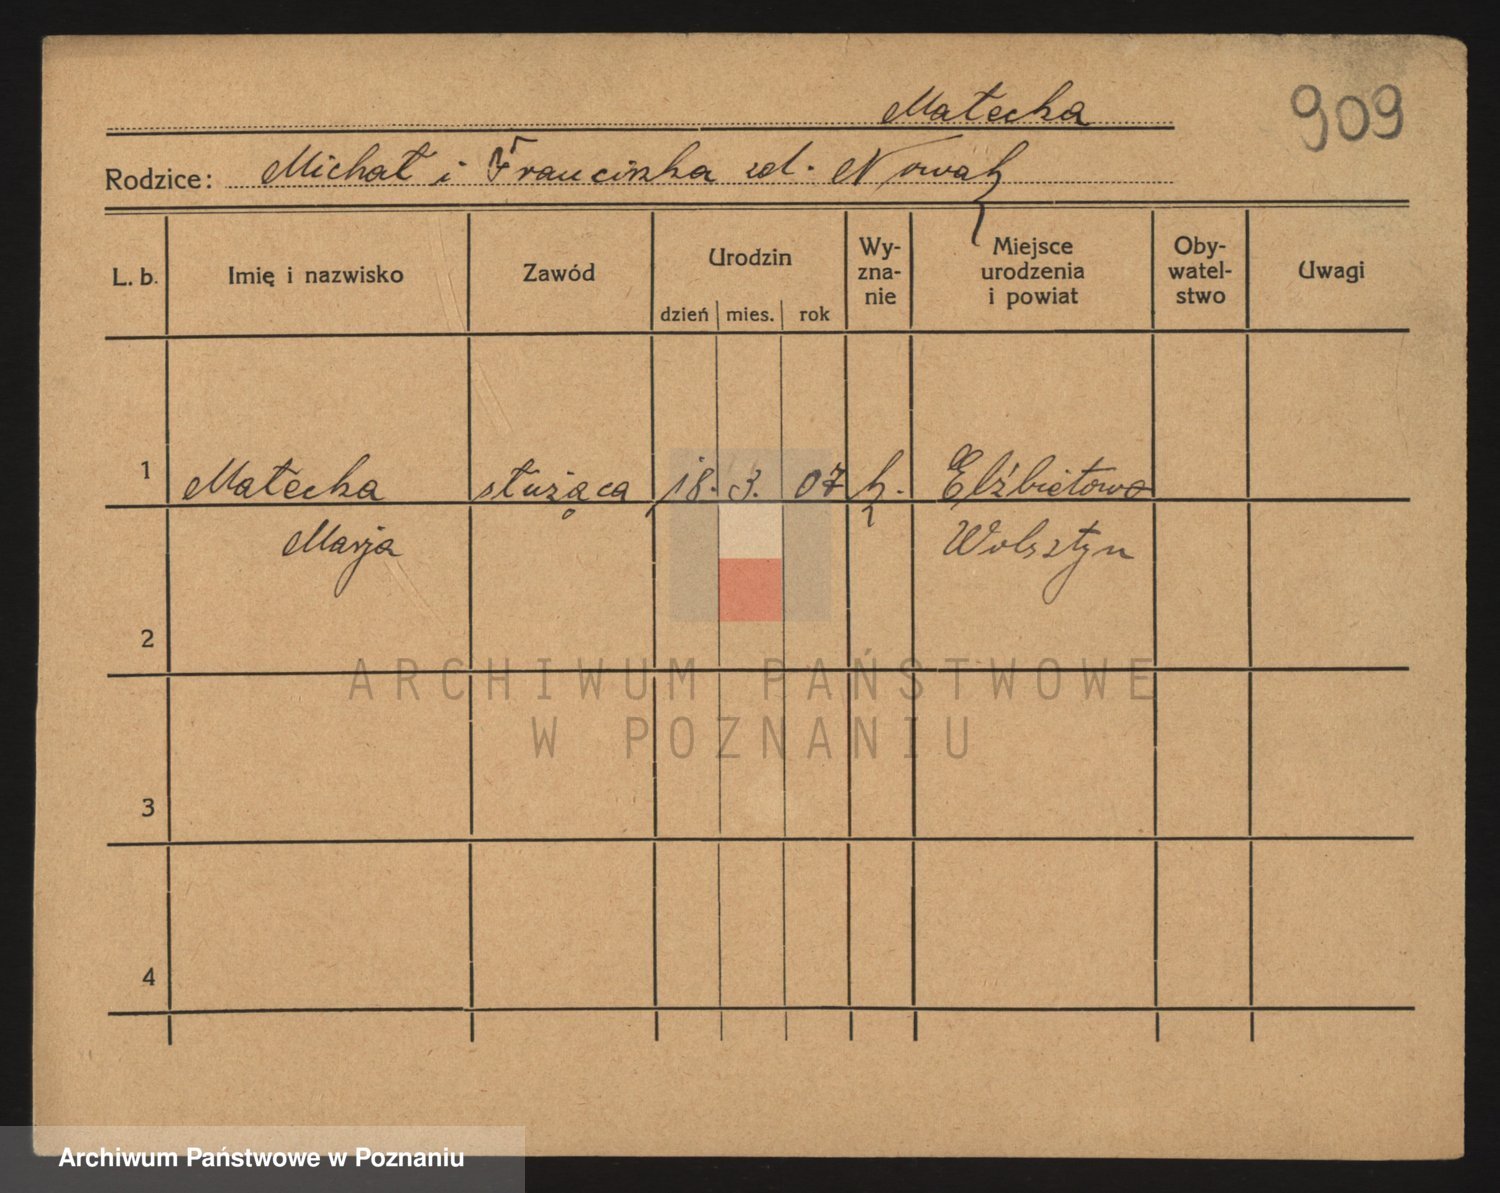 Małecka
909
Rodzice: Michał i Franciszka zd. Nowak
L. b.
Imię i nazwisko
Zawód
Urodzin
dzień mies. rok
Wy-
zna-
nie
Miejsce
urodzenia
i powiat
Oby-
watel-
stwo
Uwagi
1 Małecka służąca 18. 3. 07 k. Elżbietowo
Marja Wolsztyn
2
3
4
ARCHIWUM PAŃSTWOWE
W POZNANIU
Archiwum Państwowe w Poznaniu